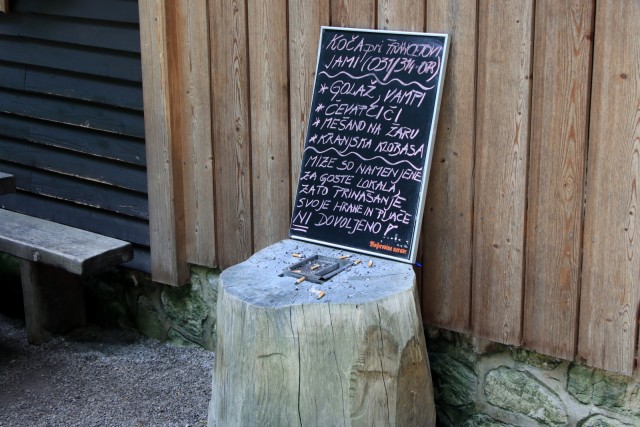 KOČA pri FRANCETOVI
JAMI (031/314-
* GOLAŽ, VAMPI
* ČEVAPČIČI
* MEŠANO NA ŽARU
* KRANJSKA KLOBASA
MIZE SO NAMENJENE
ZA GOSTE LOKALA,
ZATO PRINAŠANJE
SVOJE HRANE IN PIJAČE
NI DOVOLJENO!